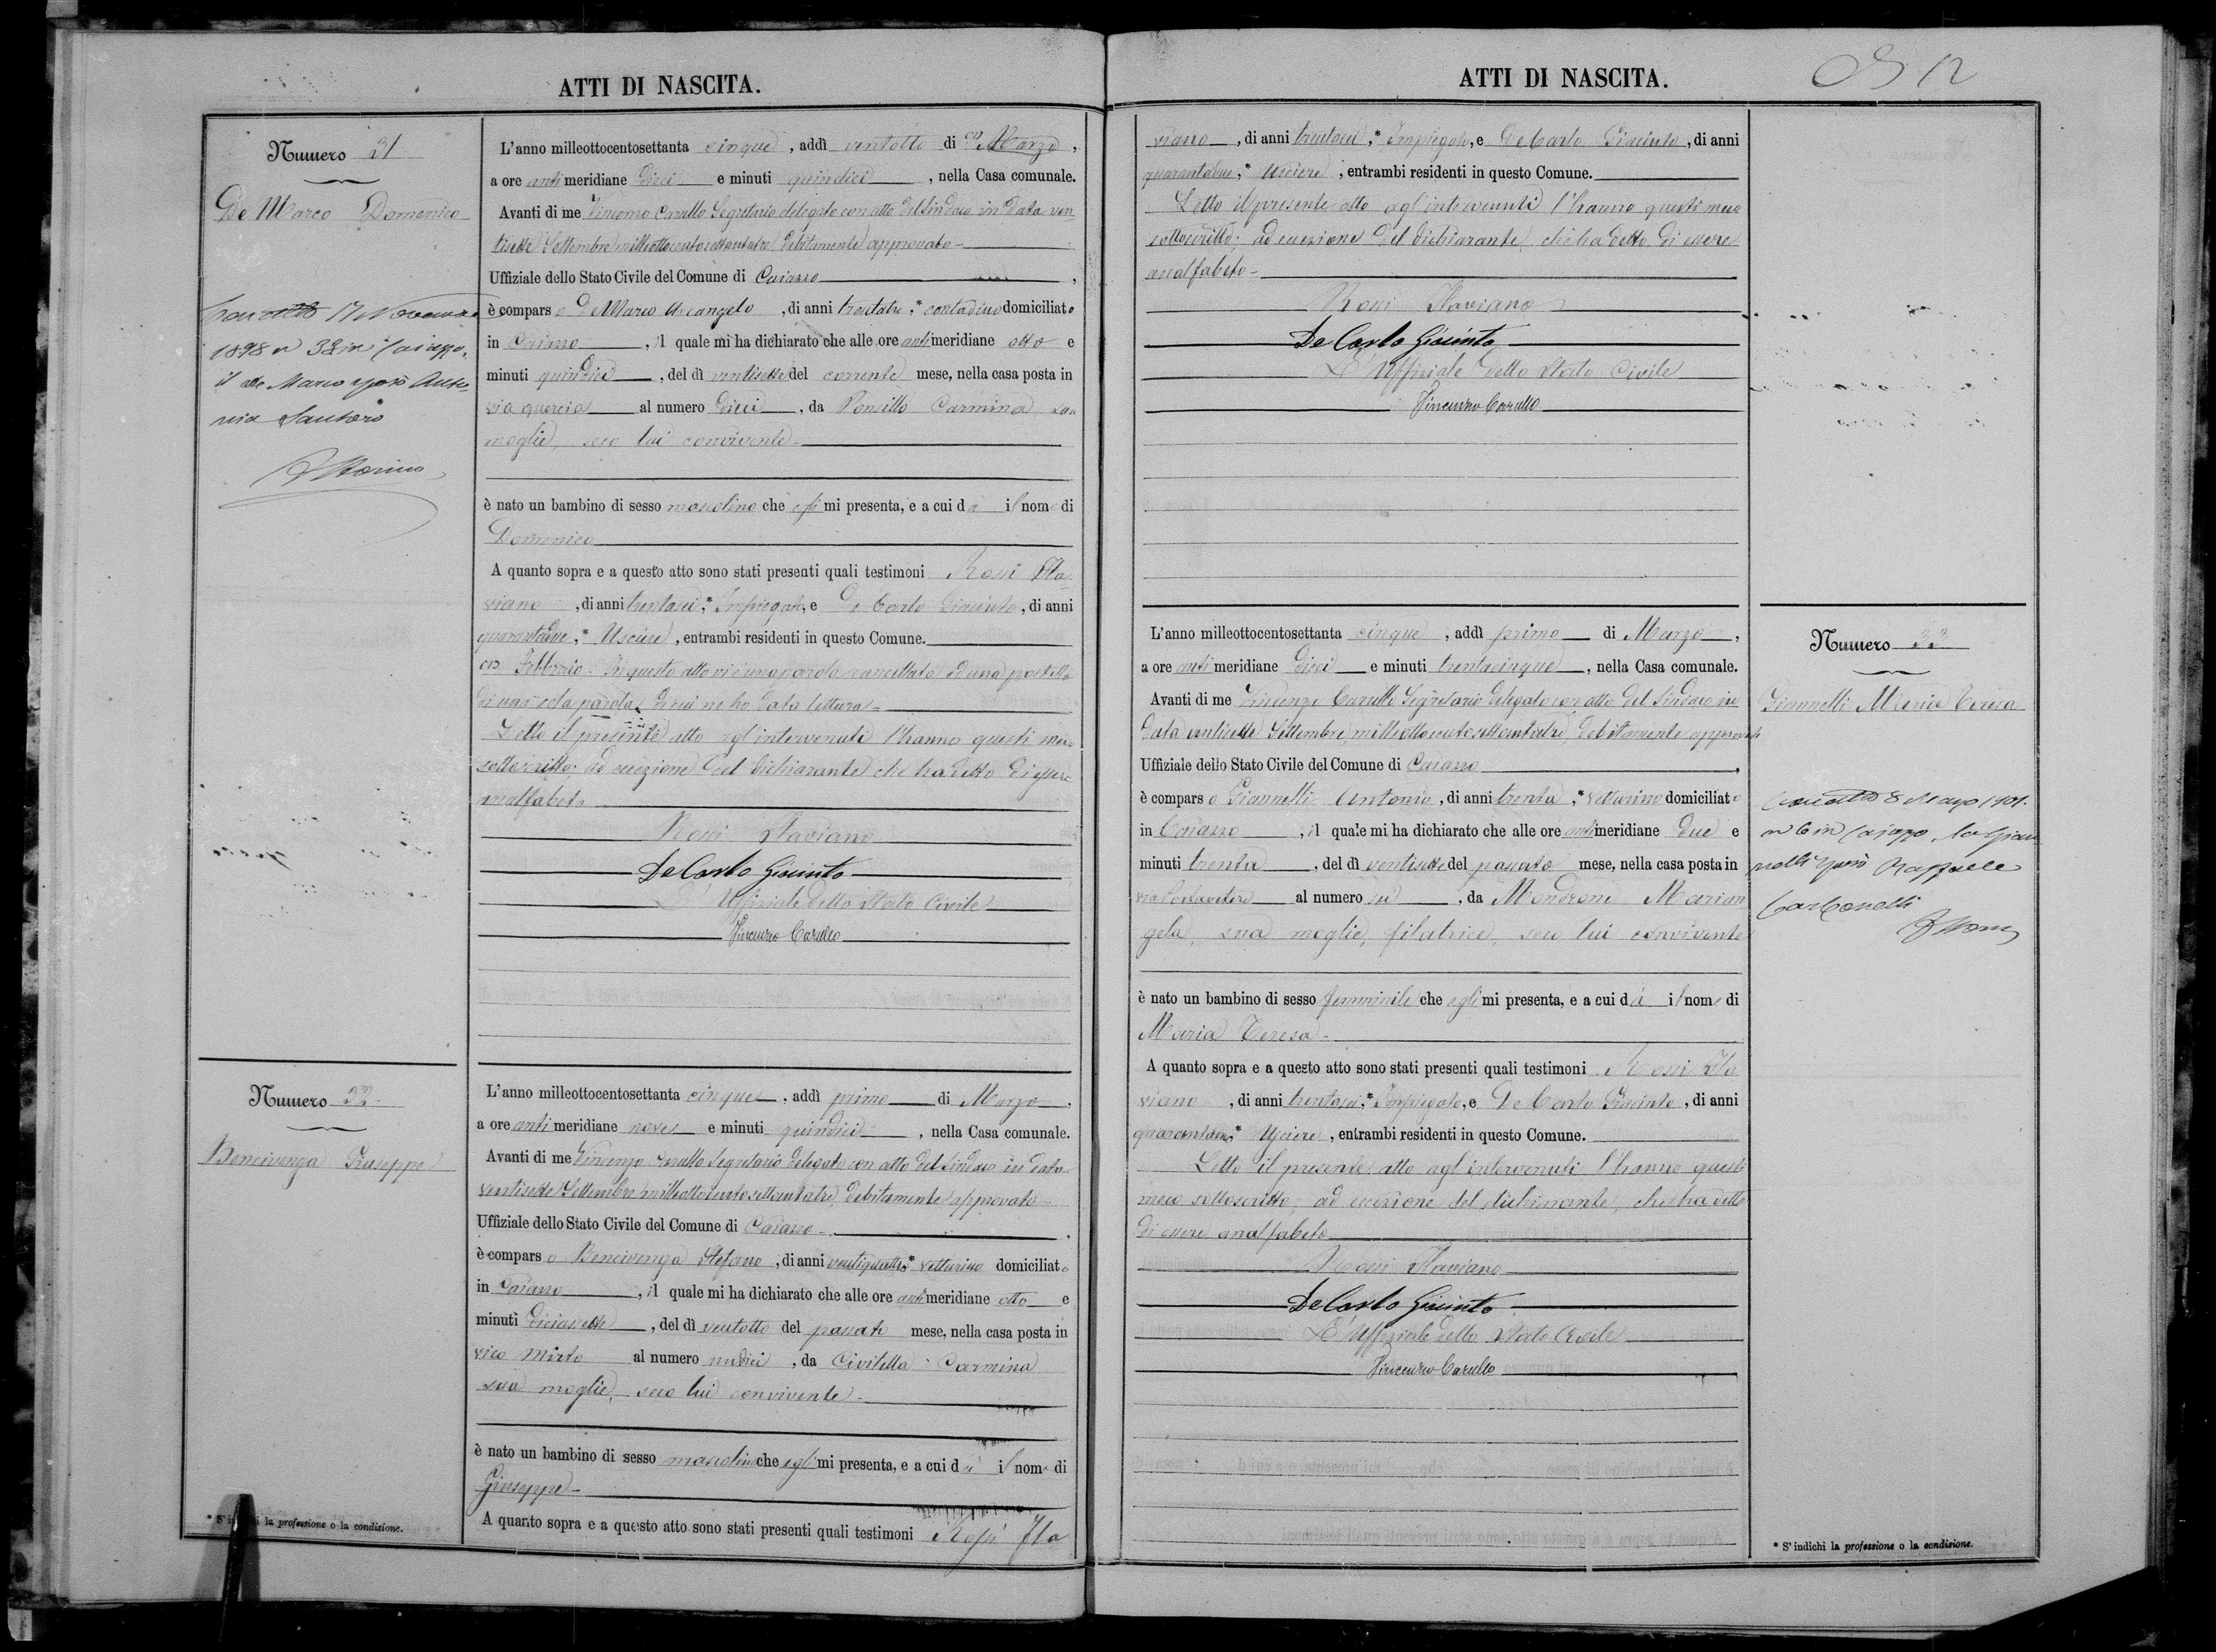 ATTI DI NASCITA.
Numero 31
De Marco Domenico
17 Novembre
1898 n 32 in Caiazzo,
il De Marco sposò Anto-
nia Santoro
L'anno milleottocentosettanta cinque, addì ventotto di (1) Marzo,
a ore antimeridiane dieci e minuti quindici, nella Casa comunale.
Avanti di me Vincenzo Carullo Segretario delegato con atto del Sindaco in data ven-
tisette Settembre milleottocentosettantatre, debitamente approvato
Uffiziale dello Stato Civile del Comune di Caiazzo,
è comparso De Marco Arcangelo, di anni trentatre,* contadino domiciliato
in Caiazzo, il quale mi ha dichiarato che alle ore antimeridiane otto e
minuti quindici, del dì ventisette del corrente mese, nella casa posta in
via quercia al numero dieci, da Ponsillo Carmina sua
moglie, seco lui convivente
è nato un bambino di sesso mascolino che egli mi presenta, e a cui dà il nome di
Domenico
A quanto sopra e a questo atto sono stati presenti quali testimoni Rossi Fla-
viano, di anni trentasei,* Impiegato, e De Carlo Giacinto, di anni
quarantadue,* Usciere, entrambi residenti in questo Comune.
(1) Febbraio - In questo atto vi è una parola cancellata ed una postilla
di una sola parola, di cui ne ho data lettura
Letto il presente atto agl'intervenuti l'hanno questi meco
sottoscritto ad eccezione del dichiarante che ha detto di essere
analfabeto
Rossi Flaviano
De Carlo Giacinto
L'Uffiziale dello Stato Civile
Vincenzo Carullo
Numero 32
Bencivenga Giuseppe
L'anno milleottocentosettanta cinque, addì primo di Marzo,
a ore antimeridiane nove e minuti quindici, nella Casa comunale.
Avanti di me Vincenzo Carullo Segretario delegato con atto del Sindaco in data
ventisette Settembre milleottocentosettantatre, debitamente approvato
Uffiziale dello Stato Civile del Comune di Caiazzo.
è comparso Bencivenga Stefano, di anni ventiquattro* vetturino domiciliato
in Caiazzo, il quale mi ha dichiarato che alle ore antimeridiane otto e
minuti diciassette, del dì ventotto del passato mese, nella casa posta in
vico Mirto al numero undici, da Civitella Carmina
sua moglie, seco lui convivente
è nato un bambino di sesso mascolino che egli mi presenta, e a cui dà il nome di
Giuseppe
A quanto sopra e a questo atto sono stati presenti quali testimoni Rossi Fla
* S'indichi la professione o la condizione.
ATTI DI NASCITA.
12
viano, di anni trentasei,* Impiegato, e De Carlo Giacinto, di anni
quarantadue,* Usciere, entrambi residenti in questo Comune.
Letto il presente atto agl'intervenuti l'hanno questi meco
sottoscritto; ad eccezione del dichiarante, che ha detto di essere
analfabeto
Rossi Flaviano
De Carlo Giacinto
L'Uffiziale dello Stato Civile
Vincenzo Carullo
Numero 33
Giannelli Maria Teresa
8 Maggio 1901.
n 6 in Caiazzo, la Gian
nelli sposò Raffaele
Carbonelli
L'anno milleottocentosettanta cinque, addì primo di Marzo,
a ore antimeridiane dieci e minuti trentacinque, nella Casa comunale.
Avanti di me Vincenzo Carullo Segretario delegato con atto del Sindaco in
data ventisette Settembre milleottocentosettantatre, debitamente approvato
Uffiziale dello Stato Civile del Comune di Caiazzo,
è comparso Giannelli Antonio, di anni trenta,* vetturino domiciliato
in Caiazzo, il quale mi ha dichiarato che alle ore antimeridiane due e
minuti trenta, del dì ventisette del passato mese, nella casa posta in
via al numero sei, da Mondrone Marian
gela, sua moglie, filatrice, seco lui convivente
è nato un bambino di sesso femminile che egli mi presenta, e a cui dà il nome di
Maria Teresa
A quanto sopra e a questo atto sono stati presenti quali testimoni Rossi Fla
viano, di anni trentasei,* Impiegato, e De Carlo Giacinto, di anni
quarantadue,* Usciere, entrambi residenti in questo Comune.
Letto il presente atto agl'intervenuti l'hanno questi
meco sottoscritto, ad eccezione del dichiarante, che ha detto
di essere analfabeto
Rossi Flaviano
De Carlo Giacinto
L'Uffiziale dello Stato Civile
Vincenzo Carullo
* S'indichi la professione o la condizione.